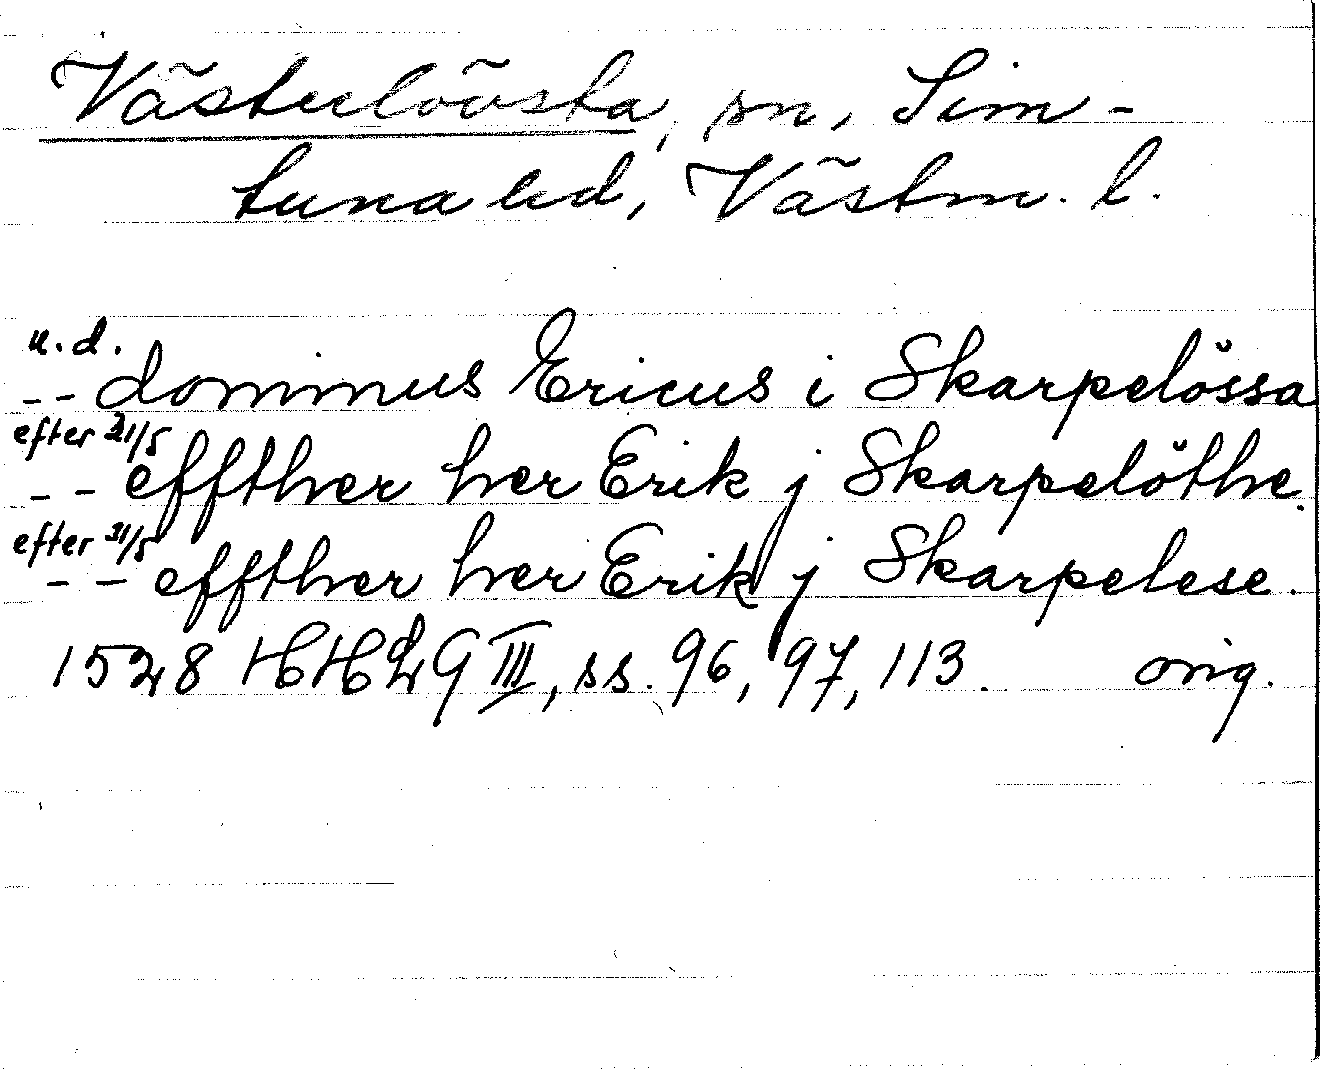 Västerlövsta, sn, Sim-
tuna hd, Västm. l.
u.d.
-- dominus Ericus i Skarpelössa
efter 21/5
-- effther her Erik j Skarpelöthe.
efter 31/5
-- effther her Erik j Skarpelese.
1528 HHLG III, ss. 96, 97, 113. orig.